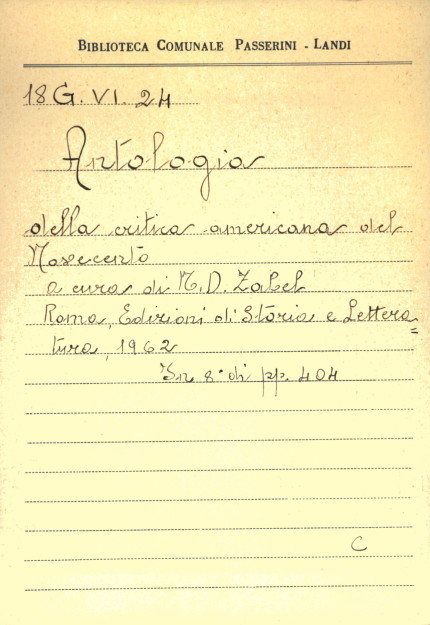 BIBLIOTECA COMUNALE PASSERINI - LANDI
18 G. VI. 24
Antologia
della critica americana del
Novecento
a cura di M. D. Zabel
Roma, Edizioni di Storia e Lettera=
tura, 1962
In 8° di pp. 404
C